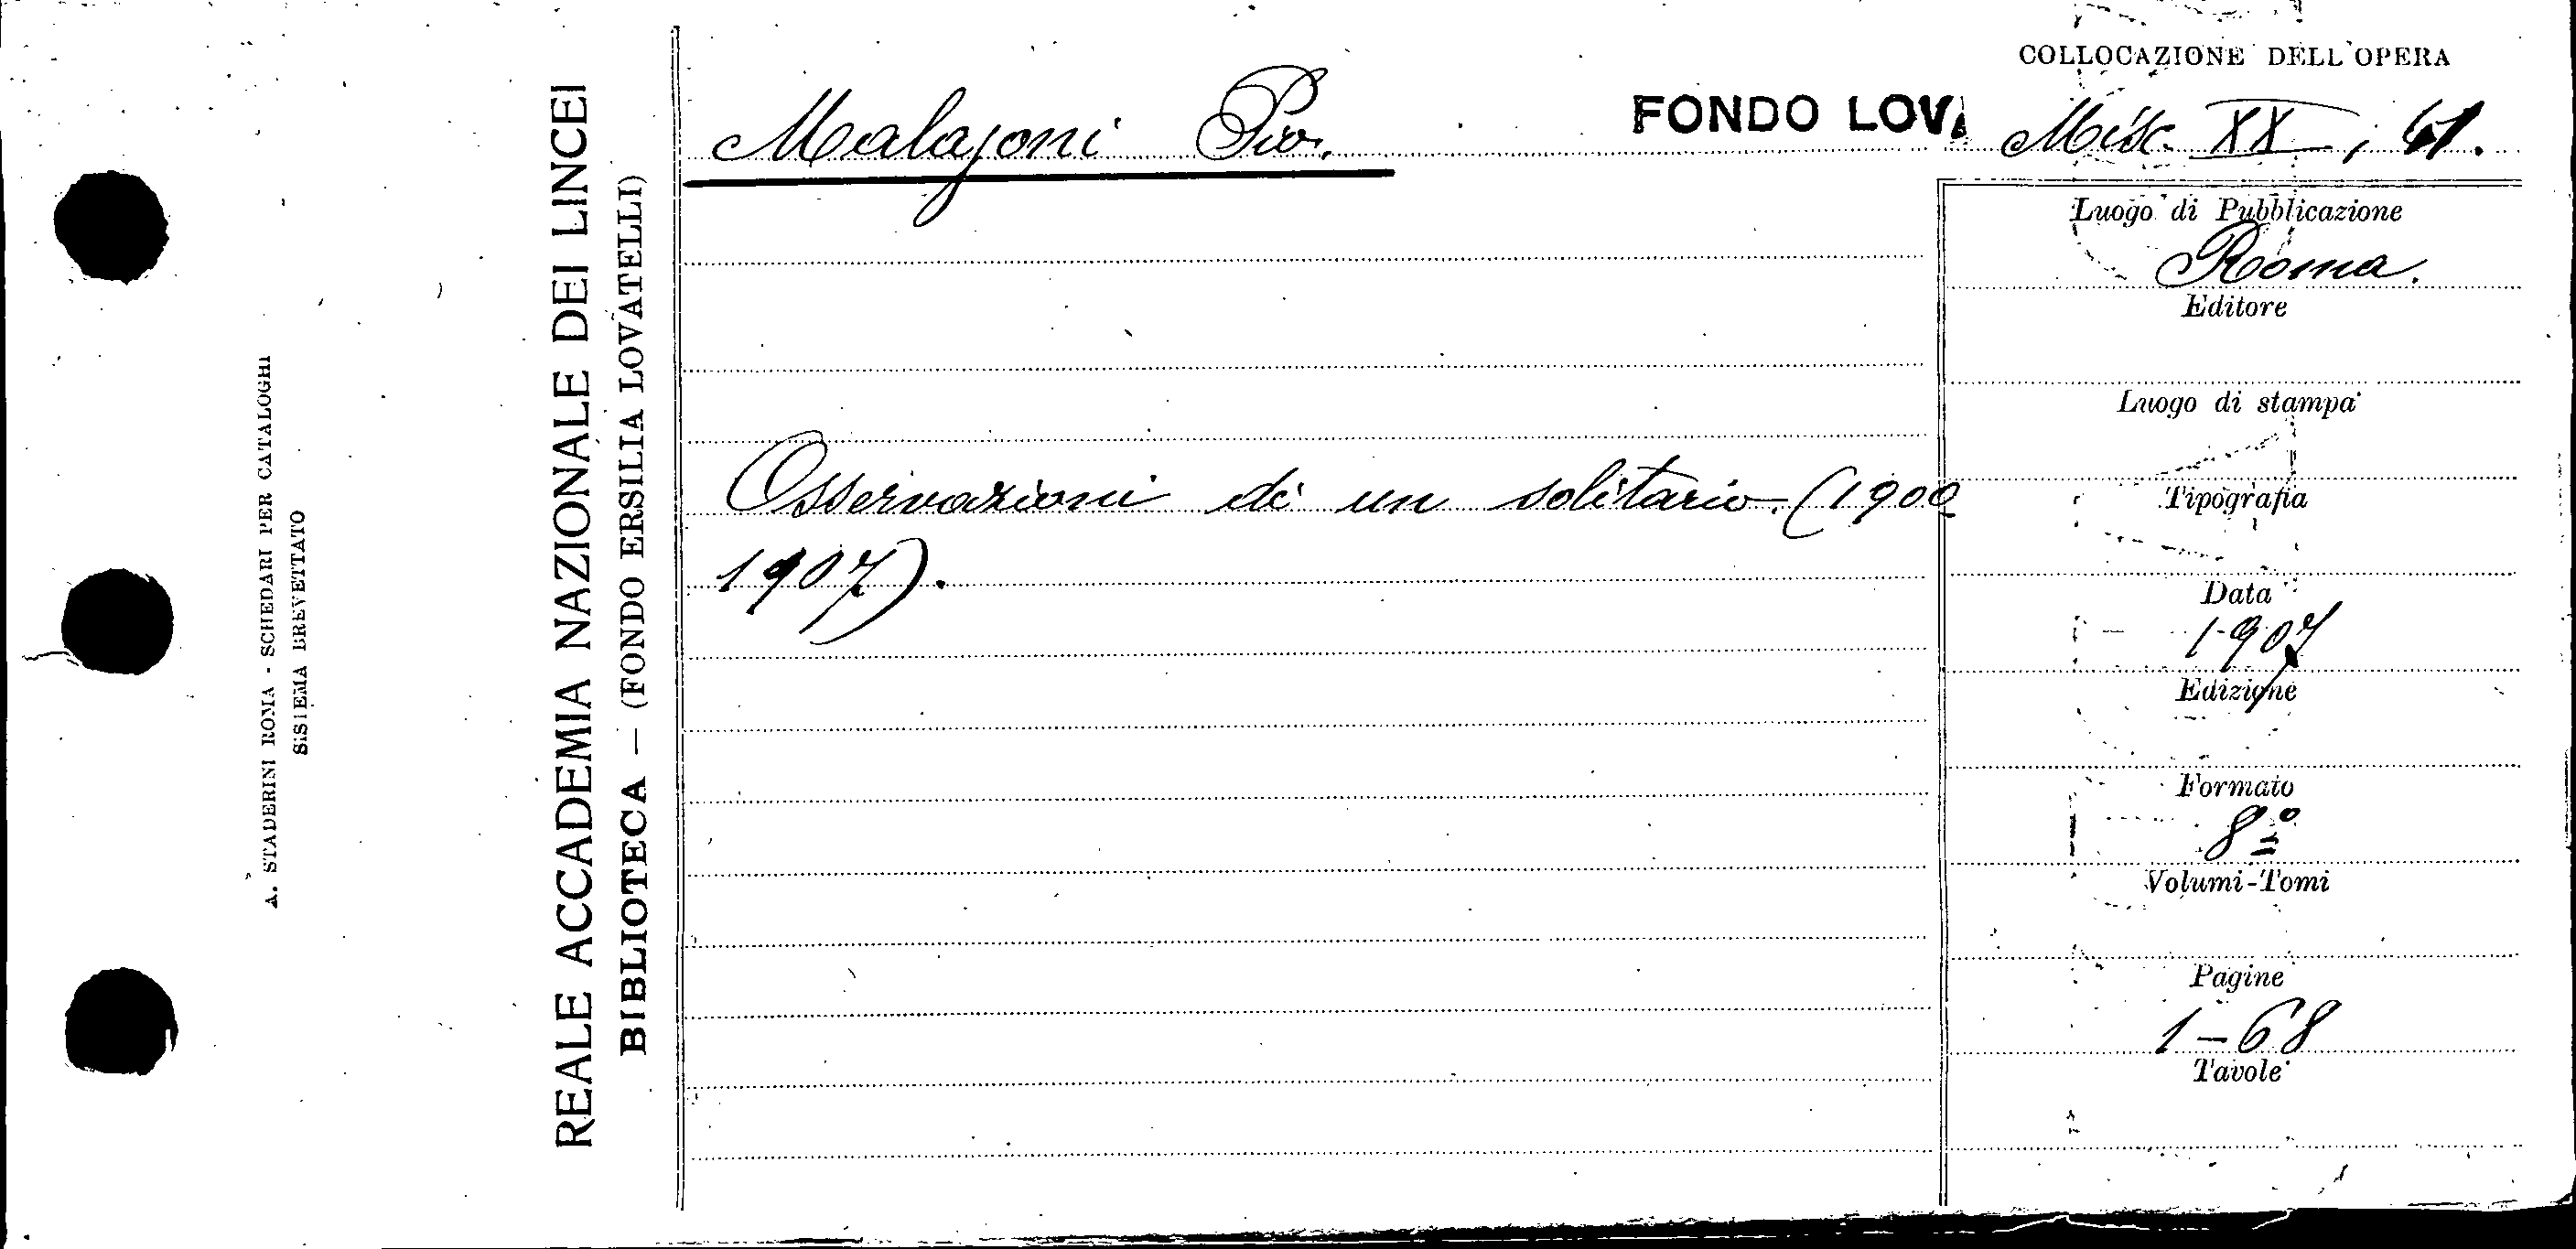 A. STADERINI ROMA - SCHEDARI PER CATALOGHI
SISTEMA BREVETTATO
REALE ACCADEMIA NAZIONALE DEI LINCEI
BIBLIOTECA — (FONDO ERSILIA LOVATELLI)
COLLOCAZIONE DELL'OPERA
Malagoni Pio.
FONDO LOVA
Misc. XX, 41.
Luogo di Pubblicazione
Roma.
Editore
Luogo di stampa
Osservazioni di un solitario. (1900
1907).
Tipografia
Data
1907
Edizione
Formato
8º
Volumi-Tomi
Pagine
1-68
Tavole